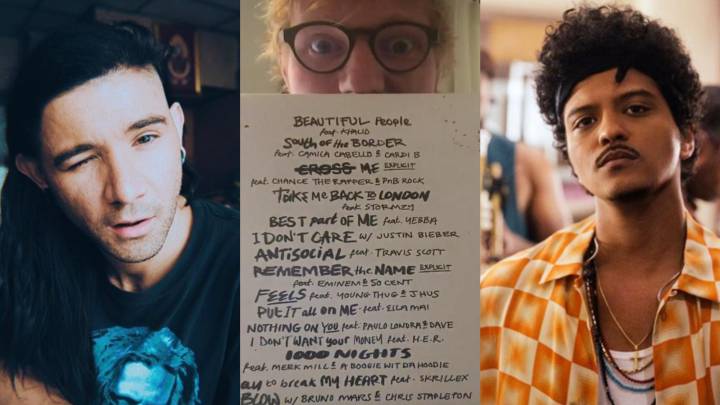 BEAUTIFUL People
feat. KHALID
South of the BORDER
feat. CAMILA CABELLO & CARDI B
CROSS ME EXPLICIT
feat. CHANCE THE RAPPER & PNB ROCK
TAKE Me BACK to LONDON
feat. STORMZY
BEST part of ME feat. YEBBA
I DON'T CARE w/ JUSTIN BIEBER
ANTISOCIAL feat. TRAVIS SCOTT
REMEMBER the NAME EXPLICIT
feat. EMINEM & 50 CENT
FEELS feat. YOUNG THUG & J HUS
PUT IT all on ME feat. ELLA MAI
NOTHING ON YOU feat. PAULO LONDRA & DAVE
I DON'T WANT your MONEY feat. H.E.R.
1000 NIGHTS
feat. MEEK MILL & A BOOGIE WIT DA HOODIE
ay to break MY HEART feat. SKRILLEX
BLOW w/ BRUNO MARS & CHRIS STAPLETON